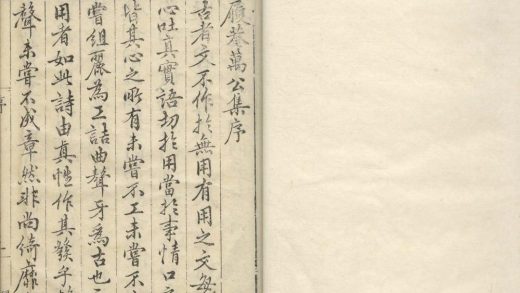 履菴萬公集序
古者文不作於無用有用之文每
心吐真實語切於用當於事情口
皆其心之所有未嘗不工未嘗不
嘗組麗為工詰曲聱牙為古也
用者如此詩由真性作其發乎
聲未嘗不成章然非尚綺靡
序